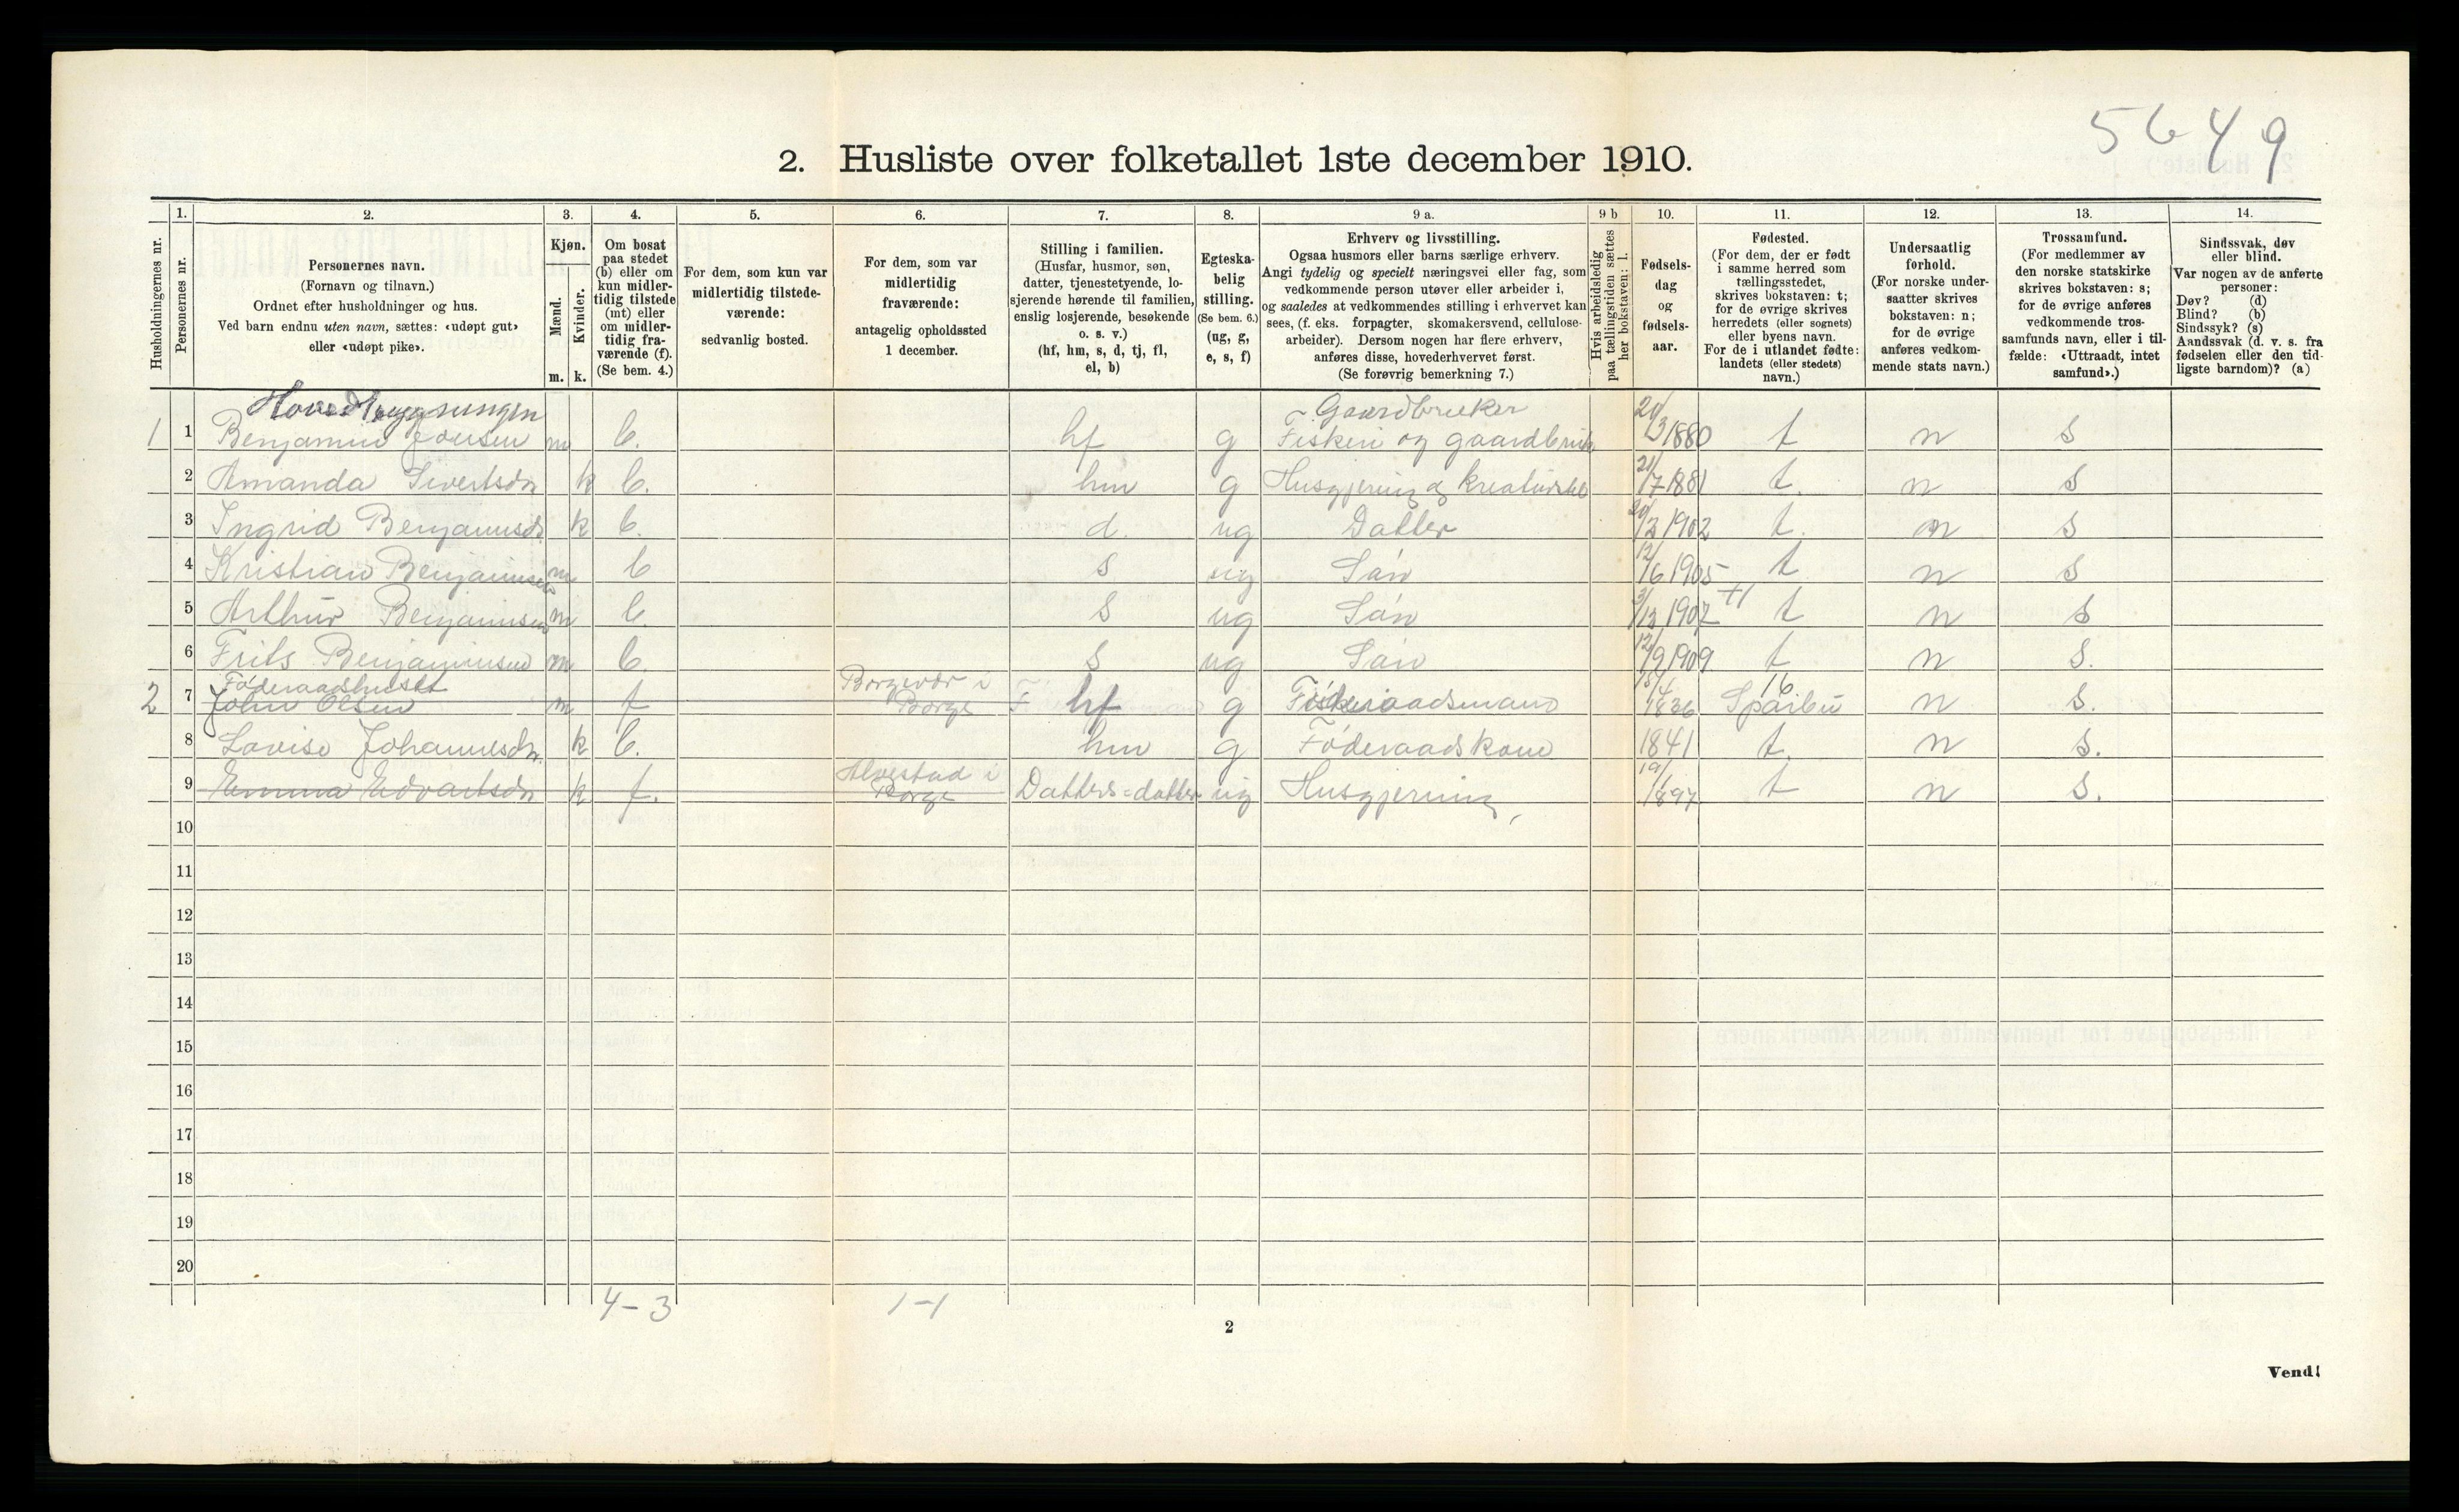 5649
2. Husliste over folketallet 1ste december 1910.
Husholdningernes nr.
1.
Personernes nr.
2.
Personernes navn.
(Fornavn og tilnavn.)
Ordnet efter husholdninger og hus.
Ved barn endnu uten navn, sættes: «udøpt gut»
eller «udøpt pike».
3.
Kjøn.
Mænd.
Kvinder.
m. k.
4.
Om bosat
paa stedet
(b) eller om
kun midler-
tidig tilstede
(mt) eller
om midler-
tidig fra-
værende (f).
(Se bem. 4.)
5.
For dem, som kun var
midlertidig tilstede-
værende:
sedvanlig bosted.
6.
For dem, som var
midlertidig
fraværende:
antagelig opholdssted
1 december.
7.
Stilling i familien.
(Husfar, husmor, søn,
datter, tjenestetyende, lo-
sjerende hørende til familien,
enslig losjerende, besøkende
o. s. v.)
(hf, hm, s, d, tj, fl,
el, b)
8.
Egteska-
belig
stilling.
(Se bem. 6.)
(ug, g,
e, s, f)
9 a.
Erhverv og livsstilling.
Ogsaa husmors eller barns særlige erhverv.
Angi tydelig og specielt næringsvei eller fag, som
vedkommende person utøver eller arbeider i,
og saaledes at vedkommendes stilling i erhvervet kan
sees, (f. eks. forpagter, skomakersvend, cellulose-
arbeider). Dersom nogen har flere erhverv,
anføres disse, hovederhvervet først.
(Se forøvrig bemerkning 7.)
9 b
Hvis arbeidsledig
paa tællingstiden sættes
her bokstaven: l.
10.
Fødsels-
dag
og
fødsels-
aar.
11.
Fødested.
(For dem, der er født
i samme herred som
tællingsstedet,
skrives bokstaven: t;
for de øvrige skrives
herredets (eller sognets)
eller byens navn.
For de i utlandet fødte:
landets (eller stedets)
navn.)
12.
Undersaatlig
forhold.
(For norske under-
saatter skrives
bokstaven: n;
for de øvrige
anføres vedkom-
mende stats navn.)
13.
Trossamfund.
(For medlemmer av
den norske statskirke
skrives bokstaven: s;
for de øvrige anføres
vedkommende tros-
samfunds navn, eller i til-
fælde: «Uttraadt, intet
samfund».)
14.
Sindssvak, døv
eller blind.
Var nogen av de anførte
personer:
Døv? (d)
Blind? (b)
Sindssyk? (s)
Aandssvak (d. v. s. fra
fødselen eller den tid-
ligste barndom)? (a)
Hovedbygningen Gaardbruker
1 1 Benjamin Jensen m b. hf g Fiskeri og gaardbruk 20/3 1880 t n s
2 Amanda Sivertsdn k b. hm g Husgjerning og kreaturstel 21/7 1881 t. n s
3 Ingrid Benjaminsdn k b. d. ug Datter 20/3 1902 t. n s
4 Kristian Benjaminsen m b s ug Søn 12/6 1905 t n s
5 Arthur Benjaminsen m b. s ug Søn 3/12 1907 t n s
6 Frits Benjaminsen m b. s ug Søn 12/9 1909 t n s.
Føderaadhuset Borgevær i 16
2 7 John Olsen m f Borge hf g Føderaadsmand 15/4 1836 Sparbu n s.
8 Lovise Johannesdn. k b. hm g Føderaadskone 1841 t. n s.
Alvestad i
9 Emma Edvartsdn k f. Borge Datters=datter ug Husgjerning 19/1 1897 t n s.
10
11
12
13
14
15
16
17
18
19
20
4-3 1-1
2
Vend!